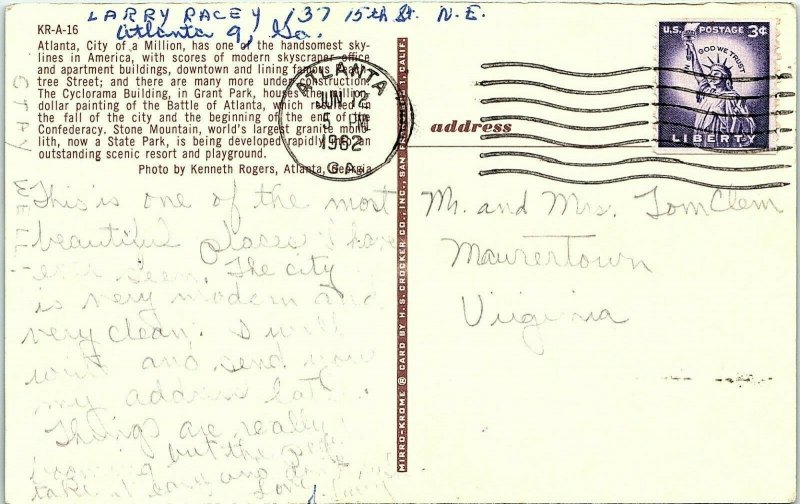 LARRY RACEY 137 15th St. N.E.
Atlanta 9, Ga.
KR-A-16
Atlanta, City of a Million, has one of the handsomest sky-
lines in America, with scores of modern skyscraper office
and apartment buildings, downtown and lining famous Peach-
tree Street; and there are many more under construction.
The Cyclorama Building, in Grant Park, houses the million
dollar painting of the Battle of Atlanta, which resulted in
the fall of the city and the beginning of the end of the
Confederacy. Stone Mountain, world's largest granite mono-
lith, now a State Park, is being developed rapidly into an
outstanding scenic resort and playground.
Photo by Kenneth Rogers, Atlanta, Georgia
ATLANTA
JUN 12
5 PM
1962
GA.
U.S. POSTAGE 3¢
IN GOD WE TRUST
LIBERTY
address
MIRRO-KROME ® CARD BY H.S. CROCKER CO., INC., SAN FRANCISCO 1, CALIF.
STAY WELL
This is one of the most
beautiful places I have
ever seem. The city
is very modern and
very clean. I will
write and send you
my address later.
Things are really
but the
take it
Love
Mr. and Mrs. Tom Clem
Maurertown
Virginia